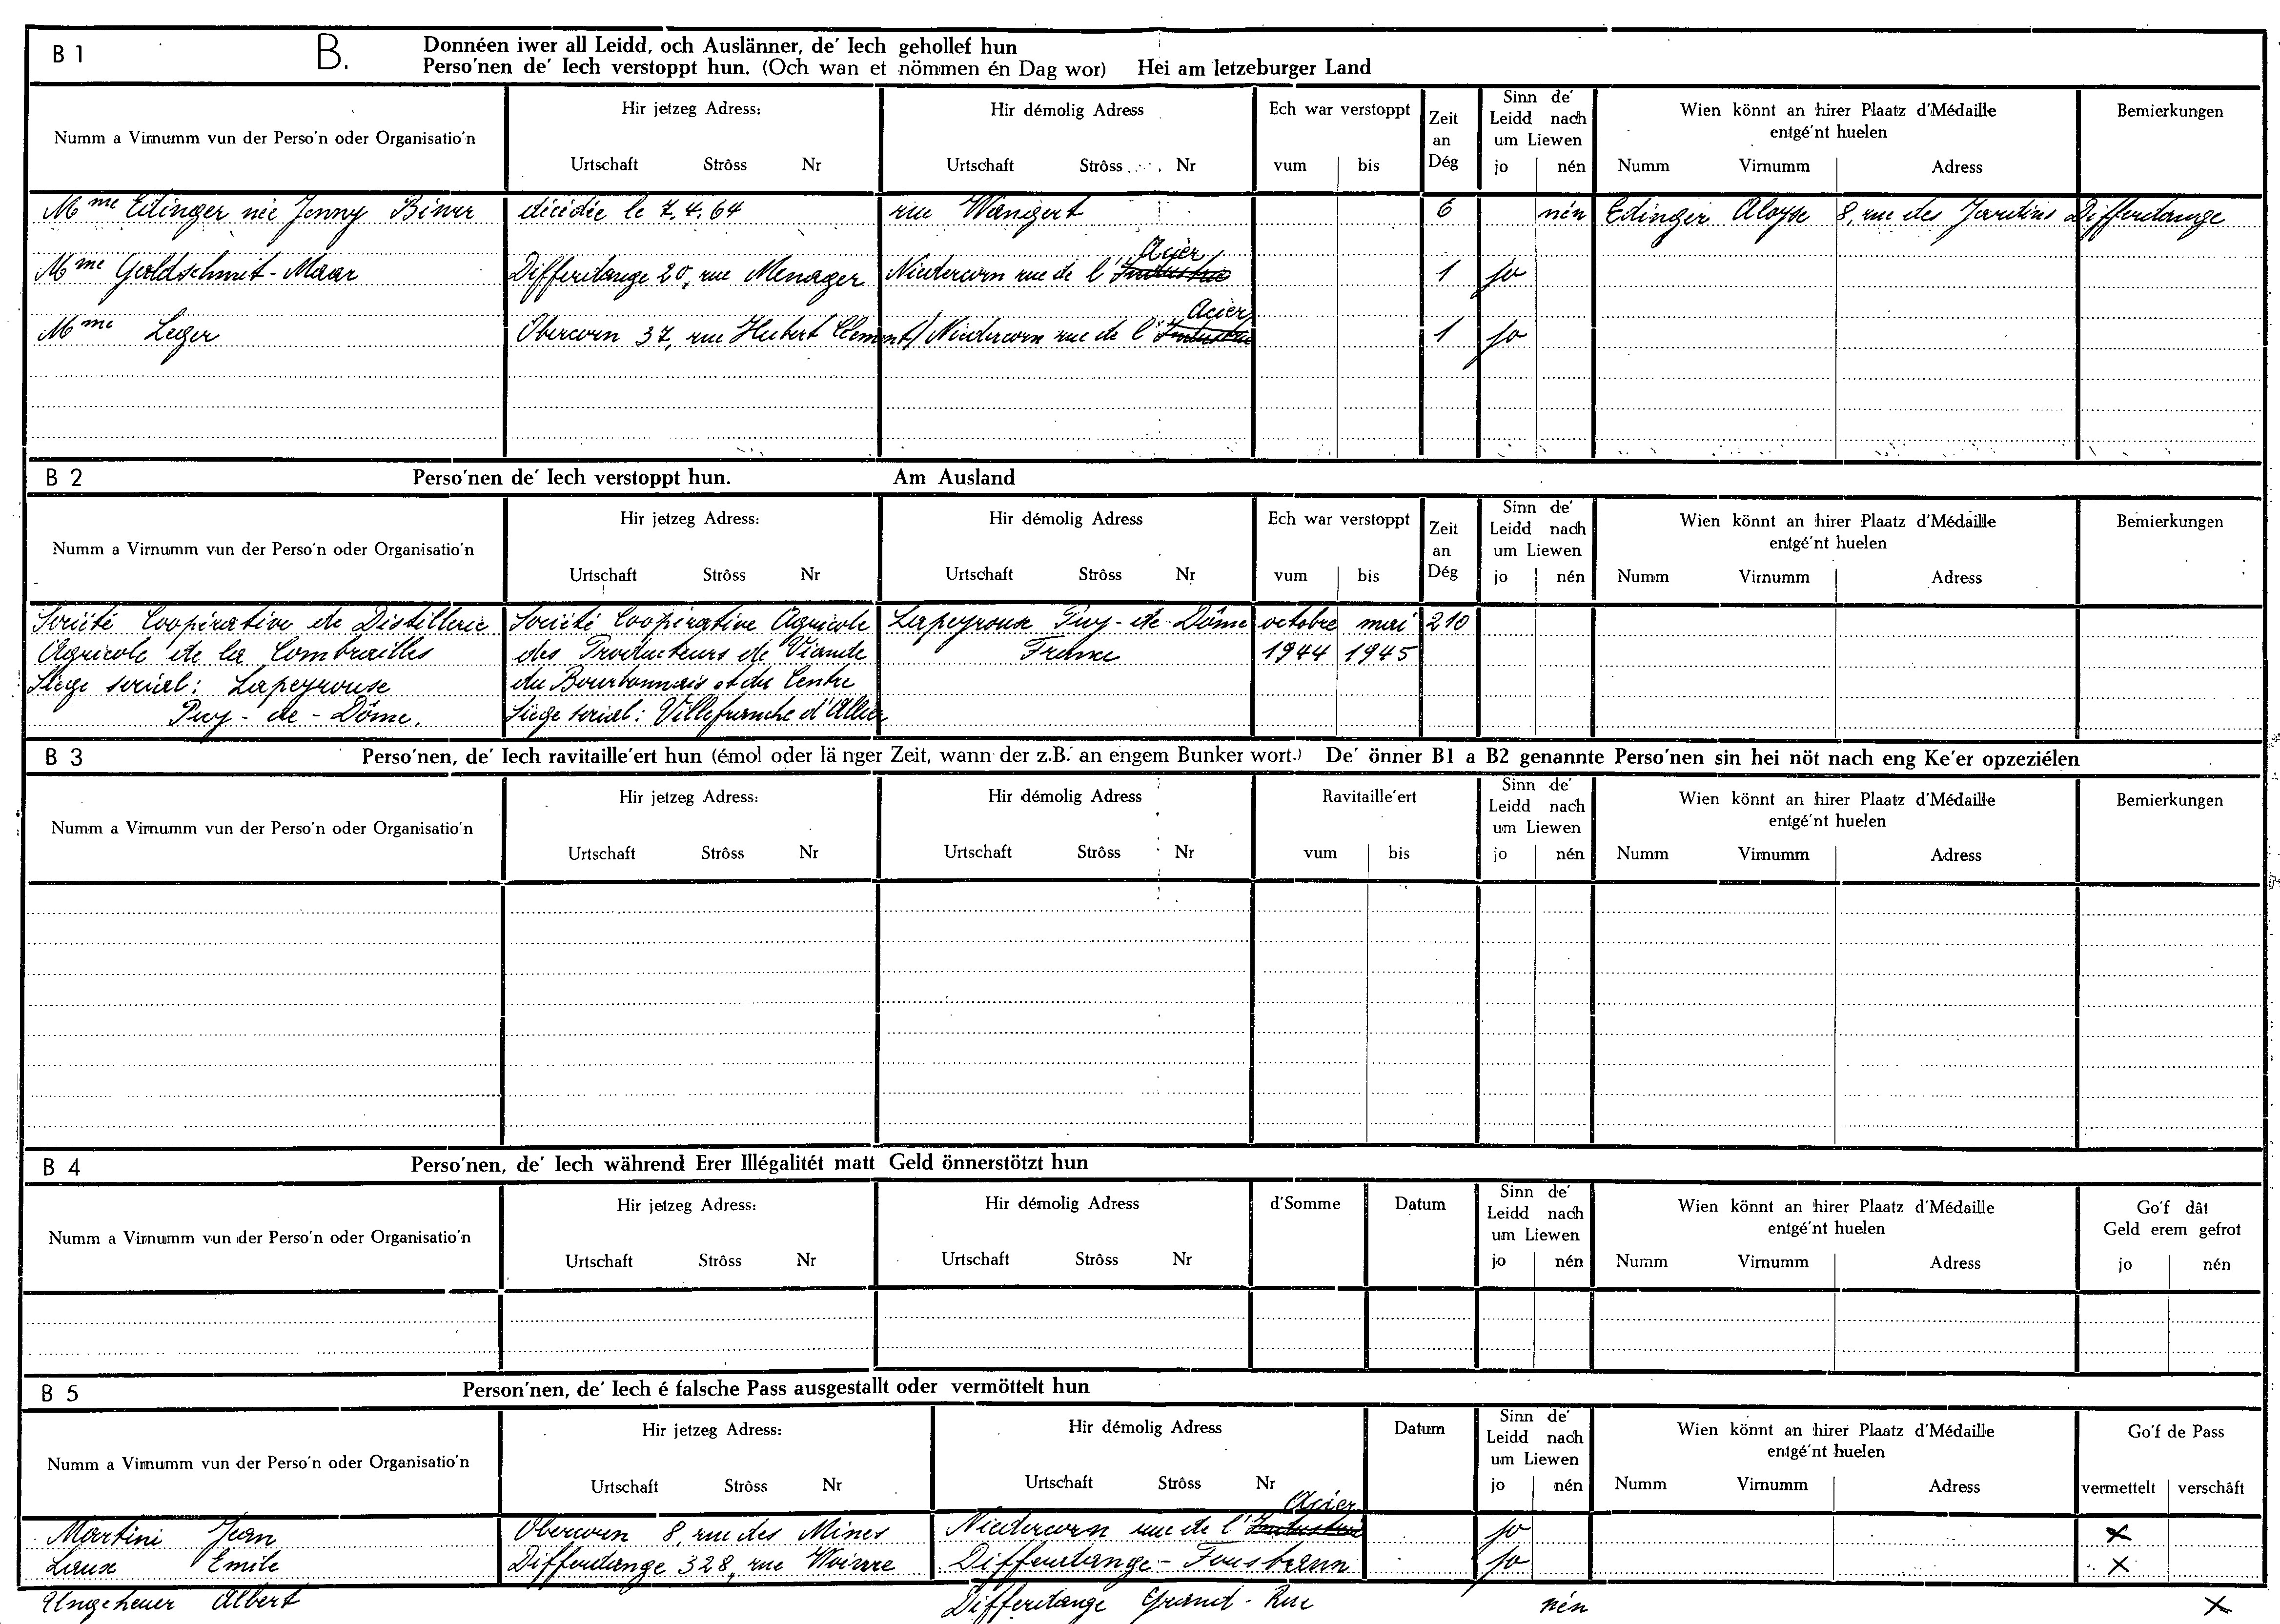 B 1
B.
Donnéen iwer all Leidd, och Auslänner, de' Iech gehollef hun
Perso'nen de' Iech verstoppt hun. (Och wan et nömmen én Dag wor) Hei am letzeburger Land
Numm a Virnumm vun der Perso'n oder Organisatio'n
Hir jetzeg Adress:
Urtschaft Strôss Nr
Hir démolig Adress
Urtschaft Strôss Nr
Ech war verstoppt
vum bis
Zeit
an
Dég
Sinn de'
Leidd nach
um Liewen
jo nén
Wien könnt an hirer Plaatz d'Médaille
entgé'nt huelen
Numm Virnumm Adress
Bemierkungen
Mme Edinger née Jenny Biver décédée le 7.4.64 rue Wangert 6 nén Edinger Aloyse 8, rue des Jardins Differdange
Acier
Mme Goldschmit-Maar Differdange 20, rue Menager Niedercorn rue de l'Industrie 1 jo
Acier
Mme Leger Obercorn 37, rue Hubert Clement/ Niedercorn rue de l'Industrie 1 jo
B 2
Perso'nen de' Iech verstoppt hun. Am Ausland
Numm a Virnumm vun der Perso'n oder Organisatio'n
Hir jetzeg Adress:
Urtschaft Strôss Nr
Hir démolig Adress
Urtschaft Strôss Nr
Ech war verstoppt
vum bis
Zeit
an
Dég
Sinn de'
Leidd nach
um Liewen
jo nén
Wien könnt an hirer Plaatz d'Médaille
entgé'nt huelen
Numm Virnumm Adress
Bemierkungen
Société Coopérative de Distillerie Société Coopérative Agricole Lapeyrouse Puy-de-Dôme octobre mai 210
Agricole de la Combrailles des Producteurs de Viande France 1944 1945
Siège social: Lapeyrouse du Bourbonnais et du Centre
Puy-de-Dôme. Siège social: Villefranche d'Allier
B 3
Perso'nen, de' Iech ravitaille'ert hun (émol oder länger Zeit, wann der z.B. an engem Bunker wort.) De' önner B1 a B2 genannte Perso'nen sin hei nöt nach eng Ke'er opzeziélen
Numm a Virnumm vun der Perso'n oder Organisatio'n
Hir jetzeg Adress:
Urtschaft Strôss Nr
Hir démolig Adress
Urtschaft Strôss Nr
Ravitaille'ert
vum bis
Sinn de'
Leidd nach
um Liewen
jo nén
Wien könnt an hirer Plaatz d'Médaille
entgé'nt huelen
Numm Virnumm Adress
Bemierkungen
B 4
Perso'nen, de' Iech während Erer Illégalitét matt Geld önnerstötzt hun
Numm a Virnumm vun der Perso'n oder Organisatio'n
Hir jetzeg Adress:
Urtschaft Strôss Nr
Hir démolig Adress
Urtschaft Strôss Nr
d'Somme
Datum
Sinn de'
Leidd nach
um Liewen
jo nén
Wien könnt an hirer Plaatz d'Médaille
entgé'nt huelen
Numm Virnumm Adress
Go'f dât
Geld erem gefrot
jo nén
B 5
Person'nen, de' Iech é falsche Pass ausgestallt oder vermöttelt hun
Numm a Virnumm vun der Perso'n oder Organisatio'n
Hir jetzeg Adress:
Urtschaft Strôss Nr
Hir démolig Adress
Urtschaft Strôss Nr
Datum
Sinn de'
Leidd nach
um Liewen
jo nén
Wien könnt an hirer Plaatz d'Médaille
entgé'nt huelen
Numm Virnumm Adress
Go'f de Pass
vermettelt verschâft
Acier
Martini Jean Obercorn 8, rue des Mines Niedercorn rue de l'Industrie jo x
Laux Emile Differdange 328, rue Woiwre Differdange-Fousbann jo x
Ungeheuer Albert Differdange Grand-Rue nén x